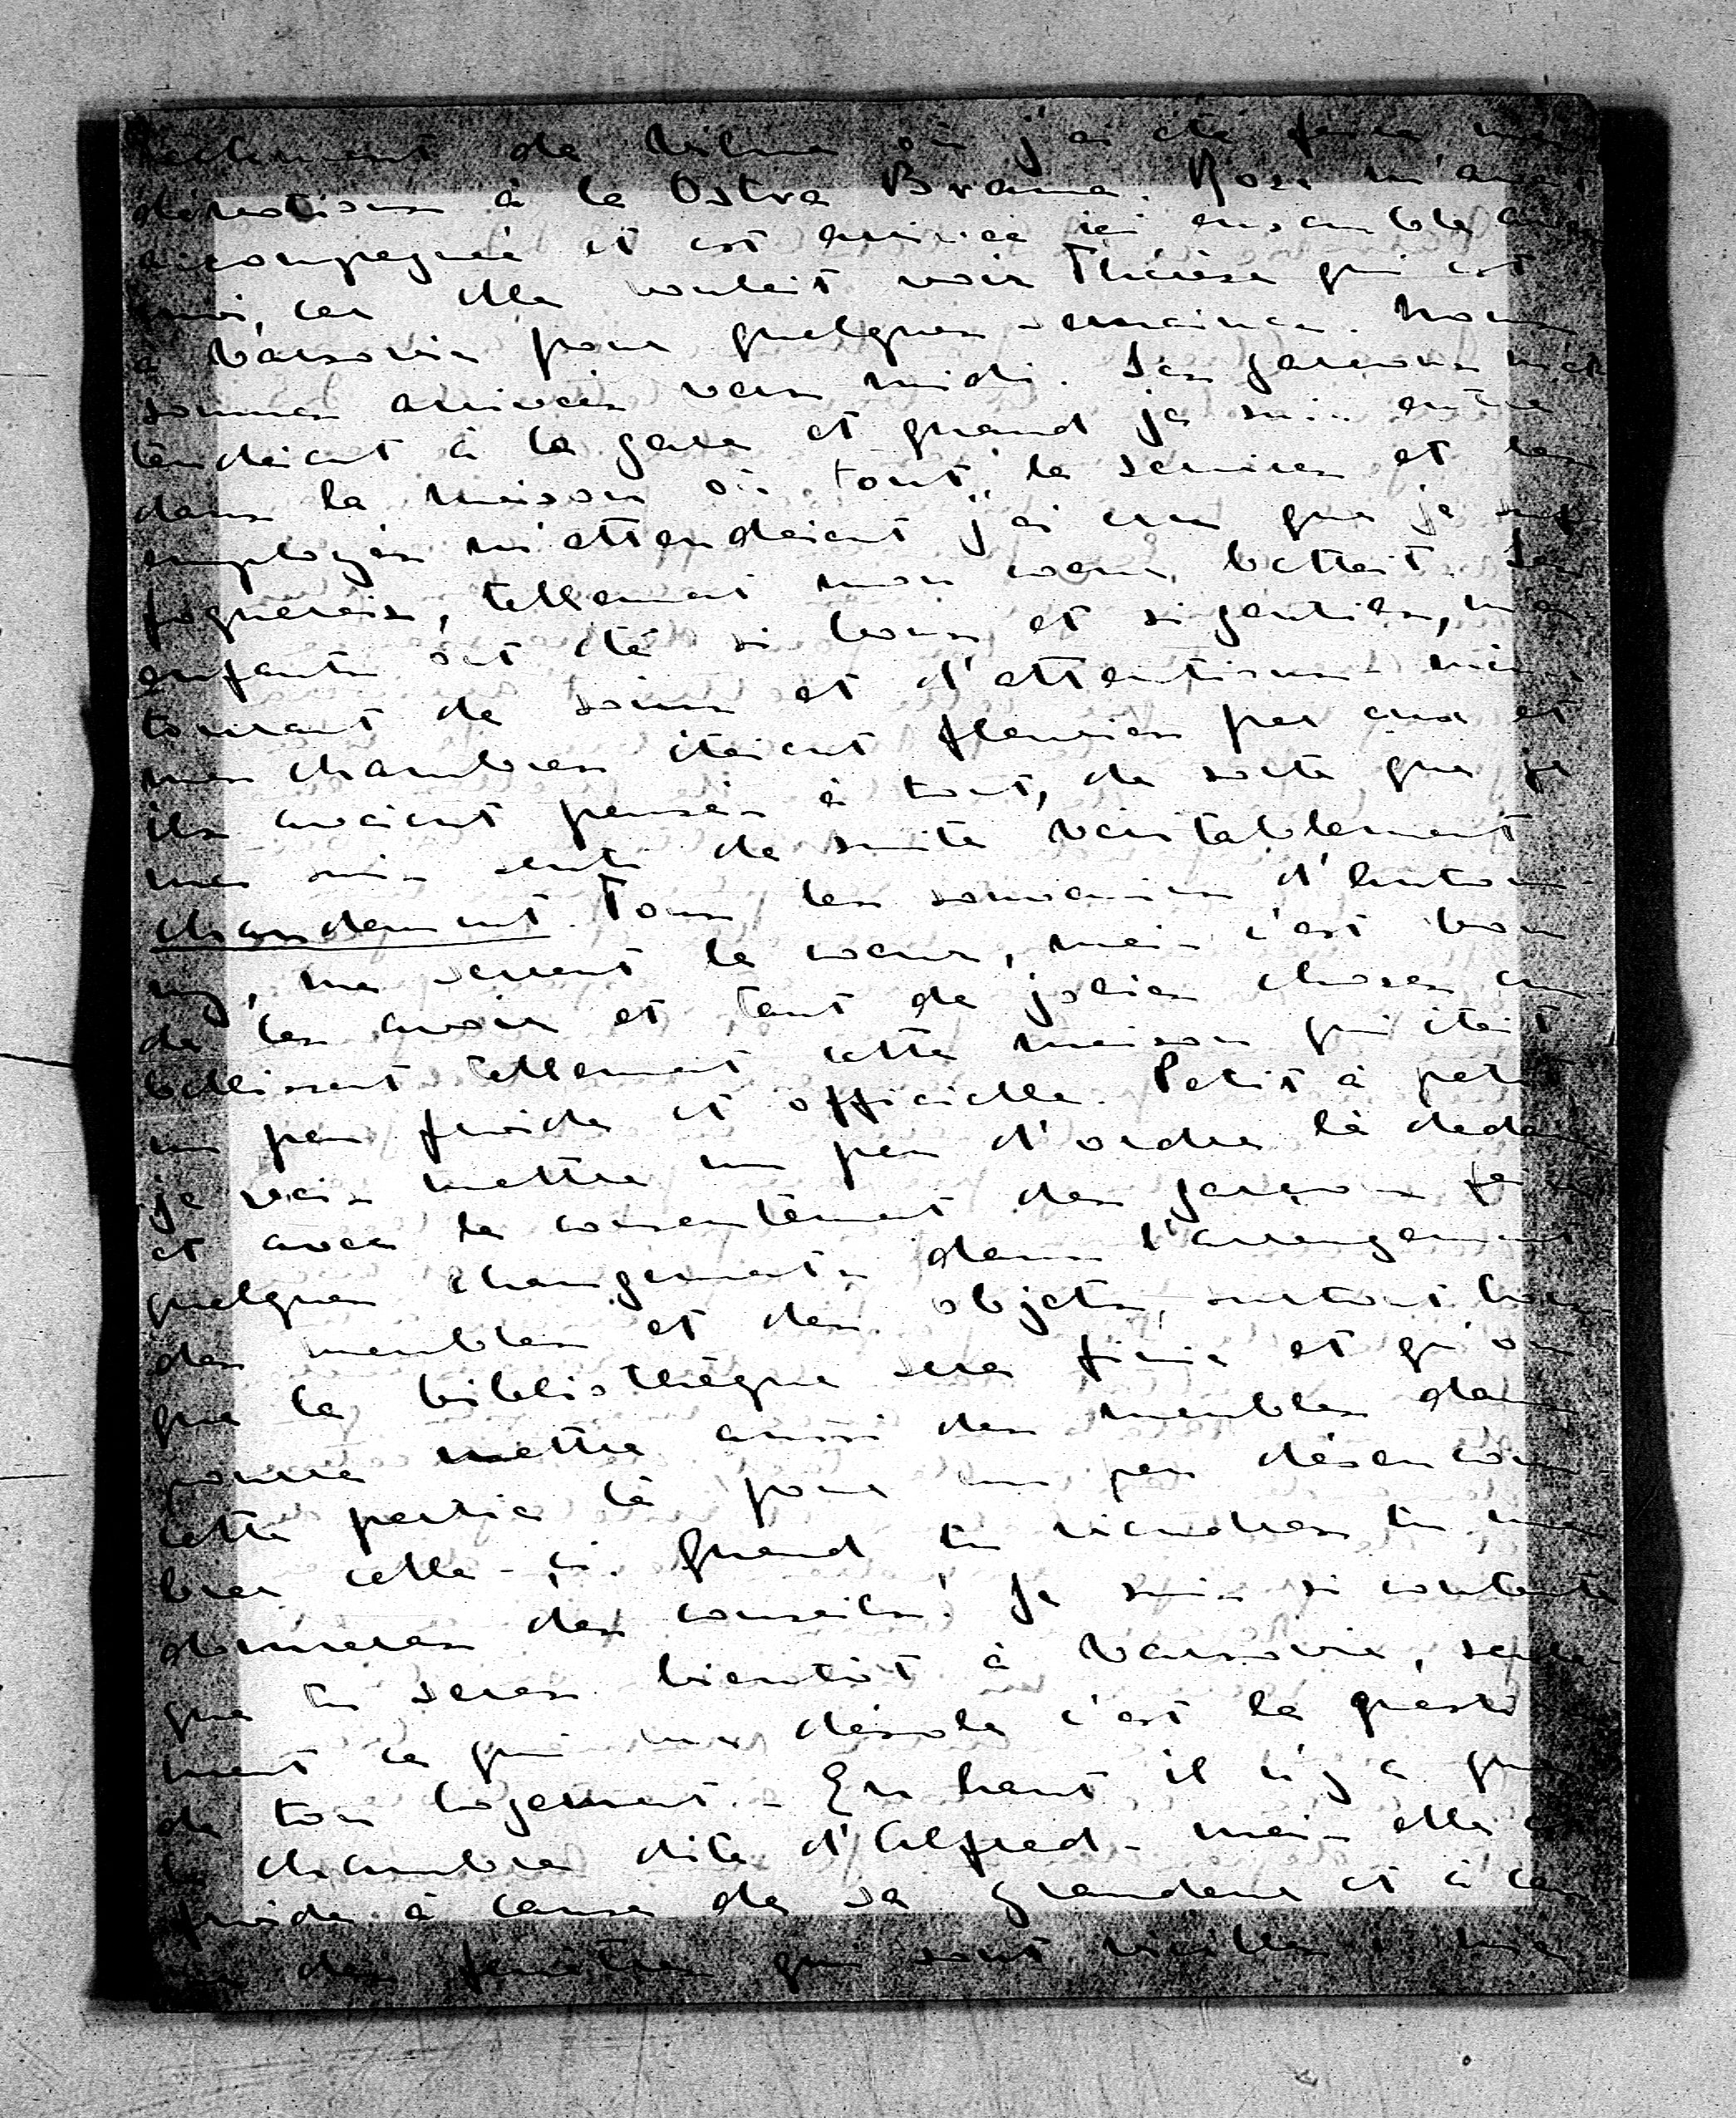 rectement de Vilna où j'ai été faire mes
dévotions à la Ostra Brama. Rose m'avait
accompagnée et est arrivée ici ensemble avec
moi, car elle voulait voir Thérèse qui est
à Varsovie pour quelques semaines. Nous
sommes arrivées vers midi. Les garçons m'at
tendaient à la gare et quand je suis entrée
dans la maison où tout le service et les
employés m'attendaient j'ai cru que je suf
foquerais, tellement mon coeur battait. Les
enfants ont été si bons et si gentils, m'en
tourant de soins et d'attentions - mes
chambres étaient fleuries par eux et
ils avaient pensés à tout, de sorte que je
me suis senti de suite véritablement
chez moi. Tous les souvenirs d'Antoni-
ny, me serrent le coeur, mais c'est bon
de les avoir et tant de jolies choses em
bellissent tellement cette maison qui était
un peu froide et officielle. Petit à petit
je vais mettre un peu d'ordre là dedans
et avec le consentement des garçons faire
quelques changements dans l'arrangement
des meubles et des objets, surtout lors
que la bibliothèque sera finie et qu'on
pourra mettre aussi des meubles dans
cette partie là pour un peu désencom
brer celle-ci. Quand tu viendras tu me
donneras des conseils! Je suis si contente
que tu seras bientôt à Varsovie, seule
ment ce qui me désole c'est la question
de ton logement. - En haut il n'y a que
la chambre dite d'Alfred - mais elle est
froide à cause de sa grandeur et à cau
se des fenêtres qui sont vieilles